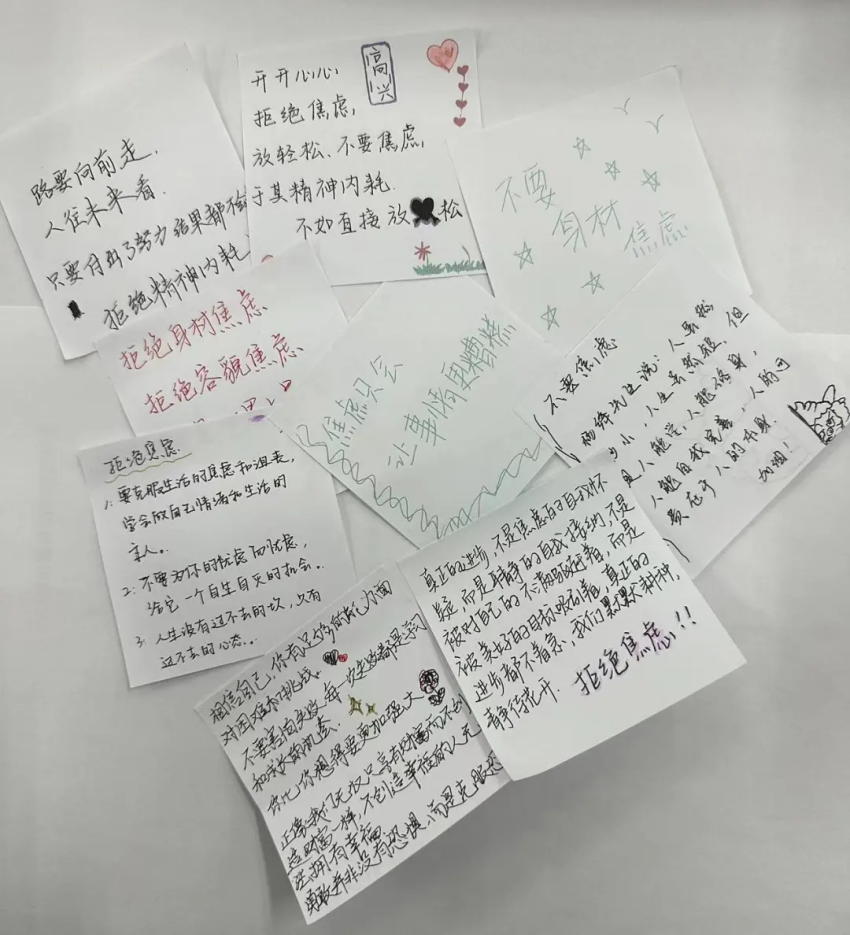 路要向前走，
人往未来看．
只要付出了努力结果都不会
拒绝精神内耗
开开心心
高兴
拒绝焦虑，
放轻松、不要焦虑，
于其精神内耗．
不如直接放松
不要
身材
焦虑
拒绝身材焦虑
拒绝容貌焦虑
焦虑只会
让事情更糟糕
不要焦虑
杨绛先生说：人虽然
渺小，人生虽然短，但
是人能学，人能修身，
人能自我完善，人的可
贵在于人的本身．
加油！
拒绝焦虑
1：要克服生活的焦虑和沮丧，
学会做自己情绪和生活的
主人。
2：不要为你的忧虑而忧虑，
给它一个自生自灭的机会．
3：人生没有过不去的坎，只有
过不去的心态．．
相信自己，你有足够的能力面
对困难和挑战．
不要害怕失败，每一次失败都是学习
和成长的机会．
你比你想得要更加强大
正像我们无权只享有财富而不创
造财富一样，不创造幸福的人无
法拥有幸福
勇敢并非没有恐惧，而是克服恐
真正的进步，不是焦虑的自我怀
疑，而是平静的自我接纳，不是
被对自己的不满驱赶着，而是
被美好的自我吸引着，真正的
进步都不着急，我们默默耕种，
静待花开．
拒绝焦虑！！